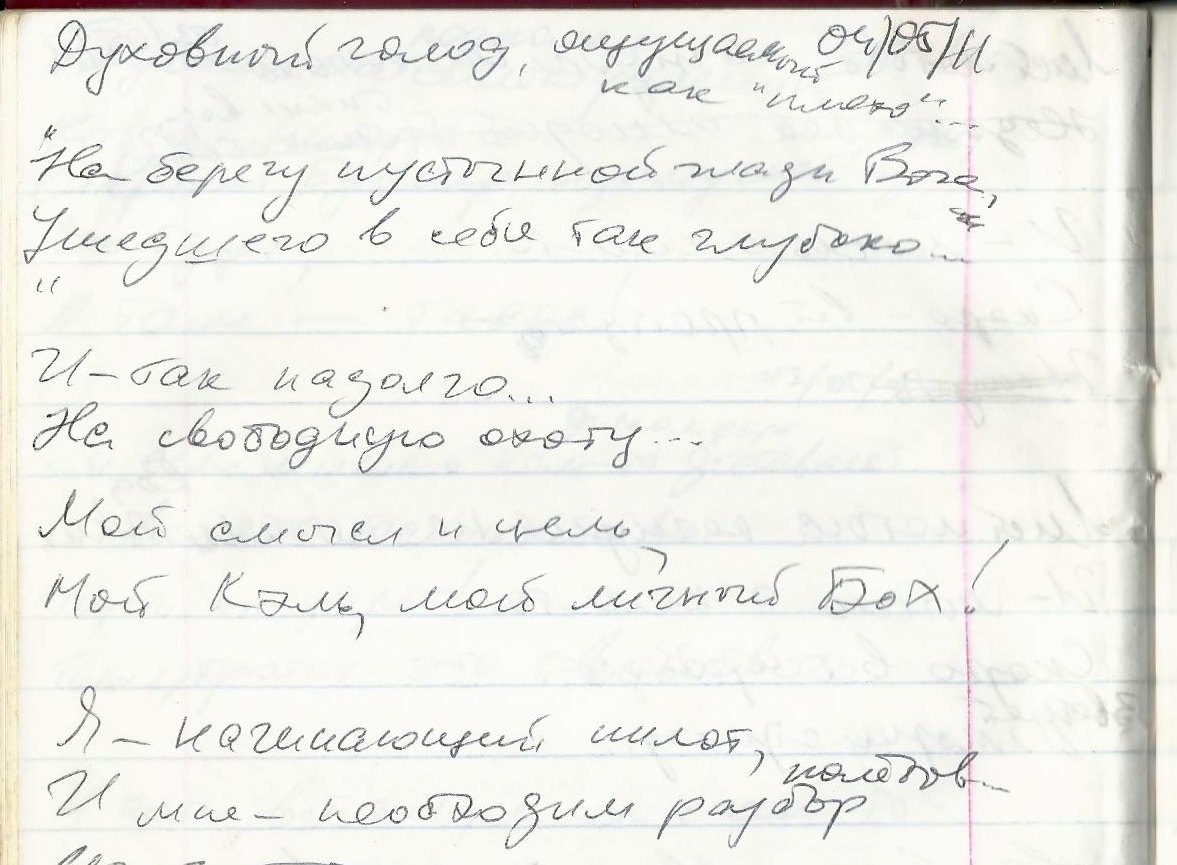 Духовный голод, ощущаемый 04/05/11
как "плохо"...
"На берегу пустынной глади Бога,
Ушедшего в себя так глубоко...
"
И - так надолго...
На свободную охоту...
Мой смысл и цель,
Мой Кэмь, мой личный Бох!
Я - начинающий пилот,
И мне - необходим разбор
полётов...